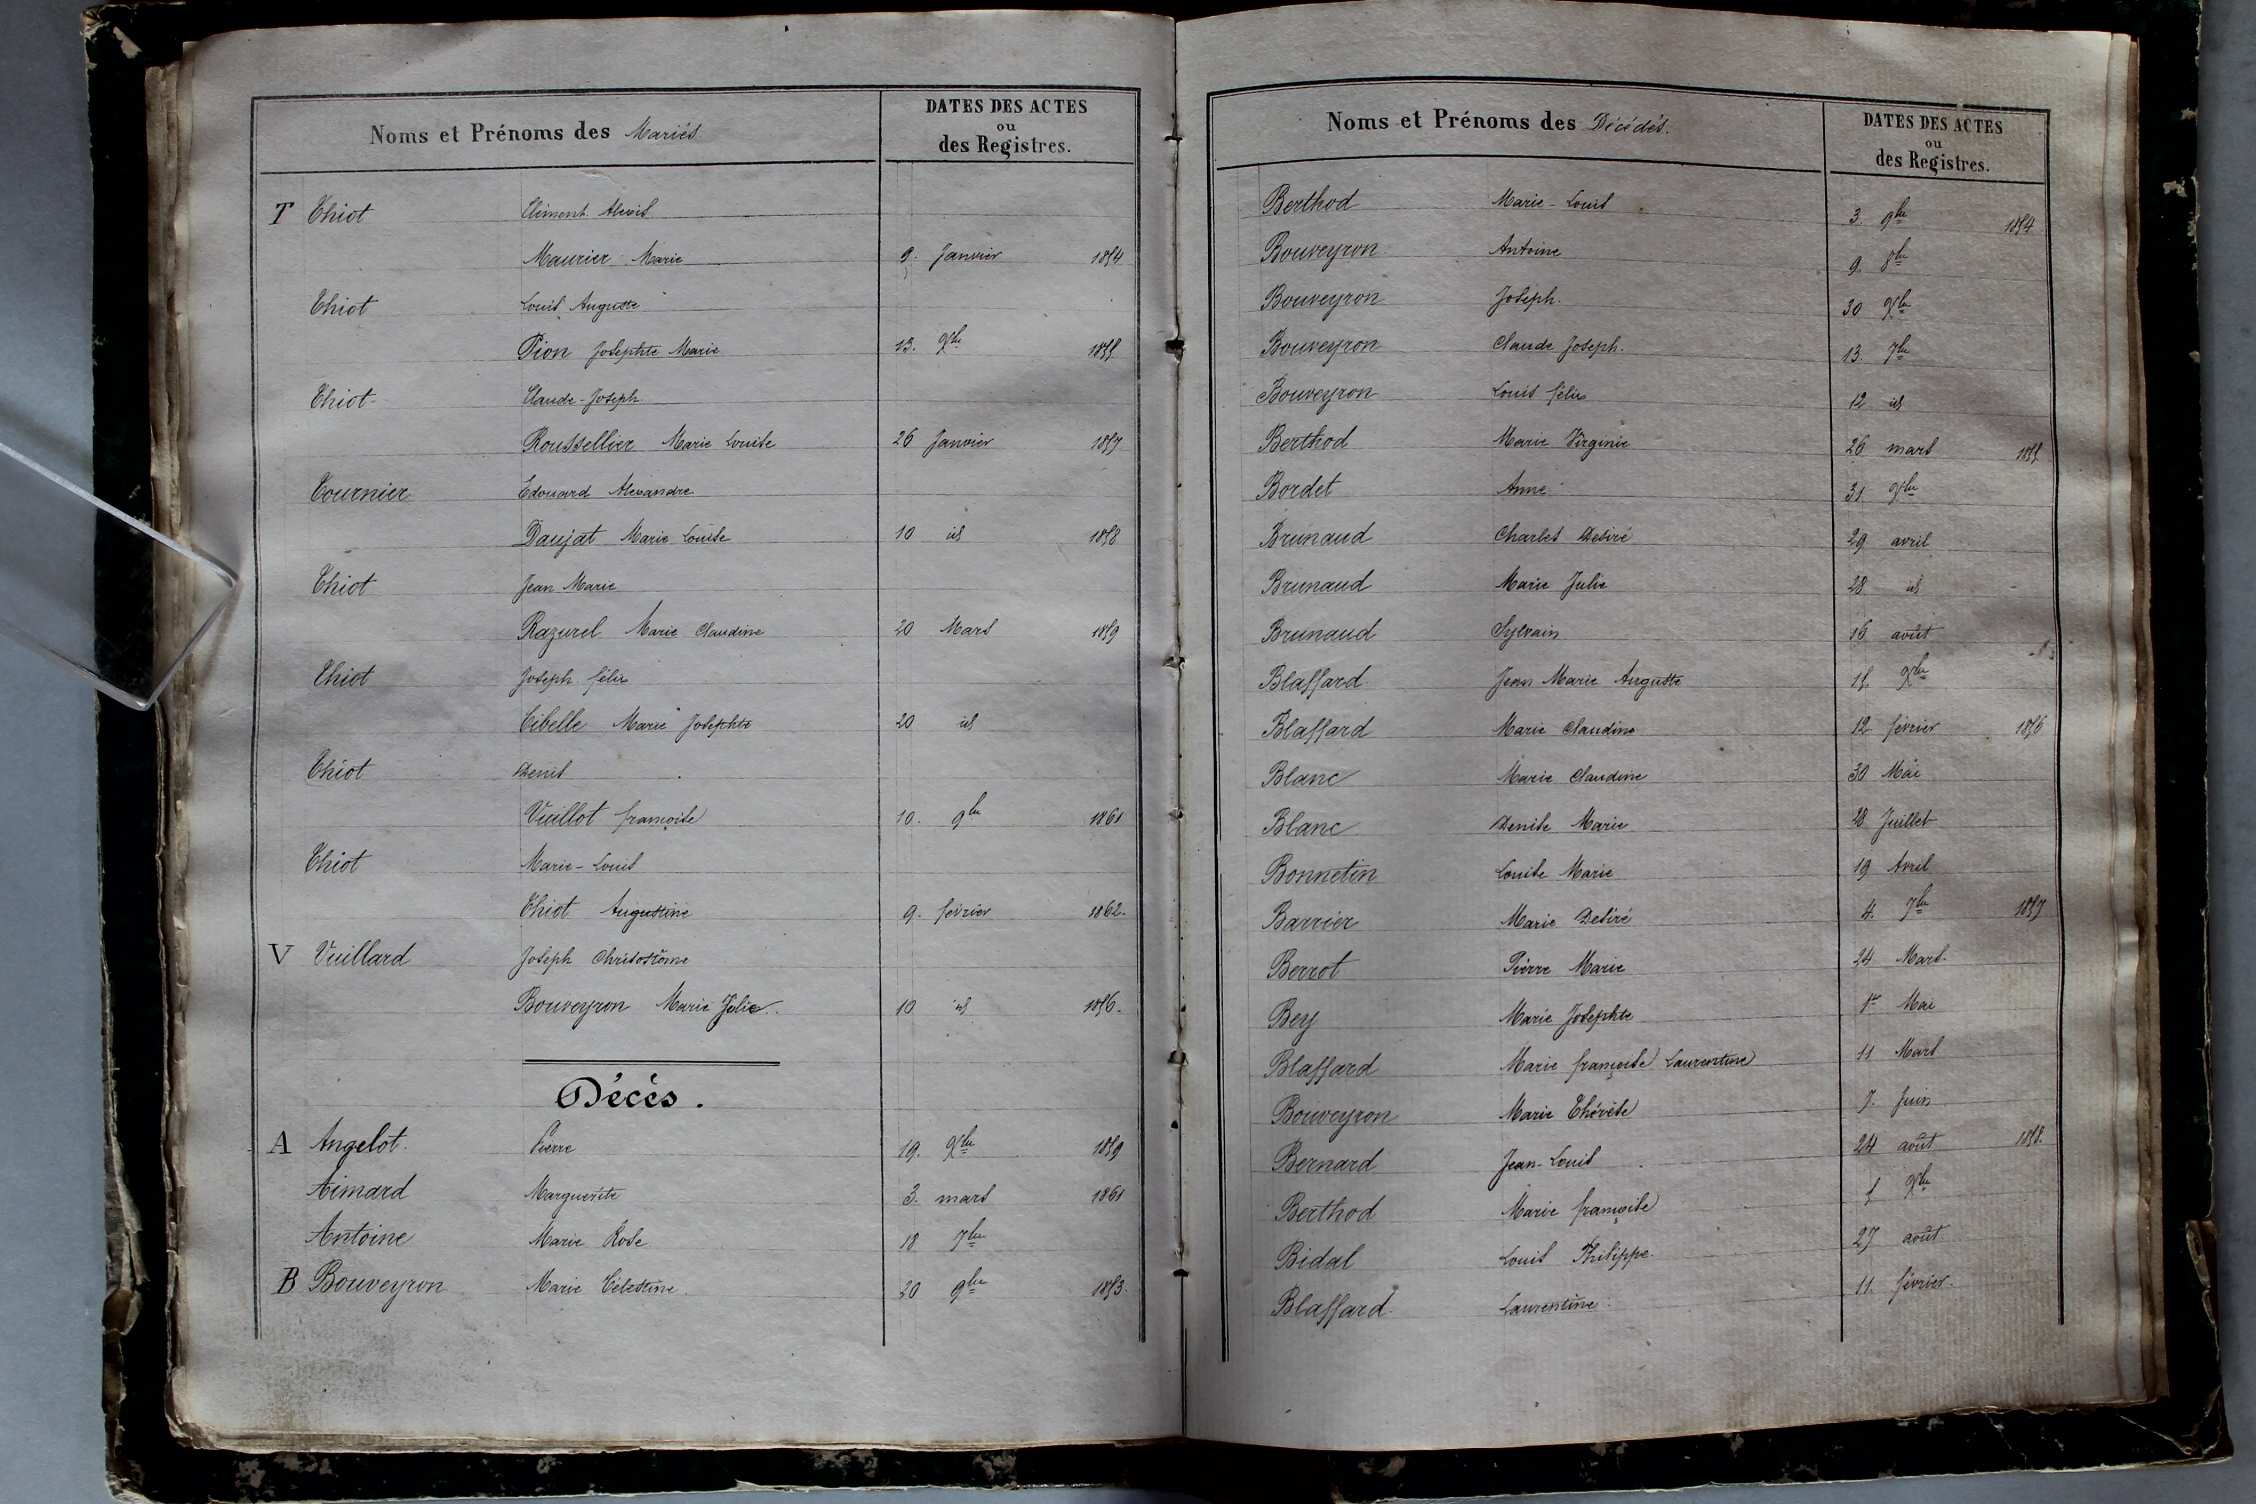 Noms et Prénoms des Mariés. DATES DES ACTES
ou
des Registres.
T Thiot Climent Alexis
Maurier Marie 9. Janvier 1854
Thiot Louis Auguste
Pion Josephte Marie 13. Xbre 1855
Thiot Claude-Joseph
Roussellier Marie Louise 26 Janvier 1857
Tournier Edouard Alexandre
Daujat Marie Louise 10 id 1858
Thiot Jean Marie
Razurel Marie Claudine 20 Mars 1859
Thiot Joseph félix
Cibelle Marie Josephte 20 id
Thiot Denis
Vuillot françoise 10. 9bre 1861
Thiot Marie-Louis
Thiot Augustine 9. février 1862.
V Vuillard Joseph Christostôme
Bouveyron Marie Julie. 10 id 1856.
Décès.
A Angelot Pierre 19. Xbre 1859
Aimard Marguerite 3. mars 1861
Antoine Marie Rose 18 7bre
B Bouveyron Marie Célestine. 20 9bre 1853.
Noms et Prénoms des Décédés. DATES DES ACTES
ou
des Registres.
Berthod Marie-Louis 3. 9bre 1854
Bouveyron Antoine 9. 8bre
Bouveyron Joseph. 30 Xbre
Bouveyron Claude Joseph. 13. 7bre
Bouveyron Louis félix 12 id
Berthod Marie Virginie 26 mars 1855
Bordet Anne 31. Xbre
Brunaud Charles Desiré 29 avril
Brunaud Marie Julie 28 id
Brunaud Sylvain 16 août
Blaffard Jean Marie Auguste 15. Xbre
Blaffard Marie Claudine 12 février 1856
Blanc Marie Claudine 30 Mai
Blanc Denise Marie 28 Juillet
Bonnetin Louise Marie 19 Avril
Barrier Marie Desiré 4. 7bre 1857
Berrot Pierre Marie 24 Mars.
Bey Marie Josephte 1er Mai
Blaffard Marie françoise Laurentine 11 Mars
Bouveyron Marie Thérèse 7. Juin
Bernard Jean-Louis 24 août 1858.
Berthod Marie françoise 5 Xbre
Bidal Louis Philippe. 27 août
Blaffard Laurentine. 11. février.